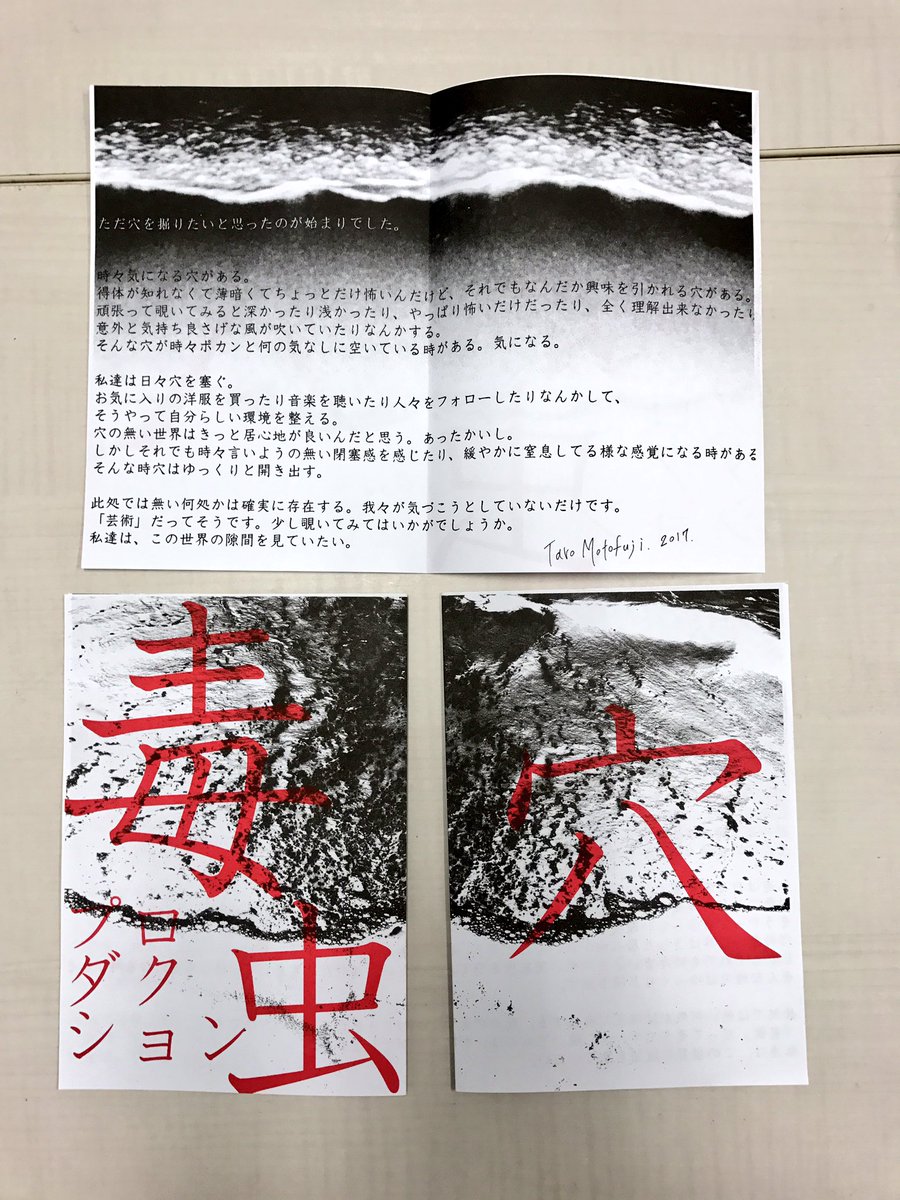 ただ穴を掘りたいと思ったのが始まりでした。
時々気になる穴がある。
得体が知れなくて薄暗くてちょっとだけ怖いんだけど、それでもなんだか興味を引かれる穴がある。
頑張って覗いてみると深かったり浅かったり、やっぱり怖いだけだったり、全く理解出来なかったり
意外と気持ち良さげな風が吹いていたりなんかする。
そんな穴が時々ポカンと何の気なしに空いている時がある。気になる。
私達は日々穴を塞ぐ。
お気に入りの洋服を買ったり音楽を聴いたり人々をフォローしたりなんかして、
そうやって自分らしい環境を整える。
穴の無い世界はきっと居心地が良いんだと思う。あったかいし。
しかしそれでも時々言いようの無い閉塞感を感じたり、緩やかに窒息してる様な感覚になる時がある
そんな時穴はゆっくりと開き出す。
此処では無い何処かは確実に存在する。我々が気づこうとしていないだけです。
「芸術」だってそうです。少し覗いてみてはいかがでしょうか。
私達は、この世界の隙間を見ていたい。
Taro Motofuji. 2017.
毒虫
プロ
ダク
ション
穴